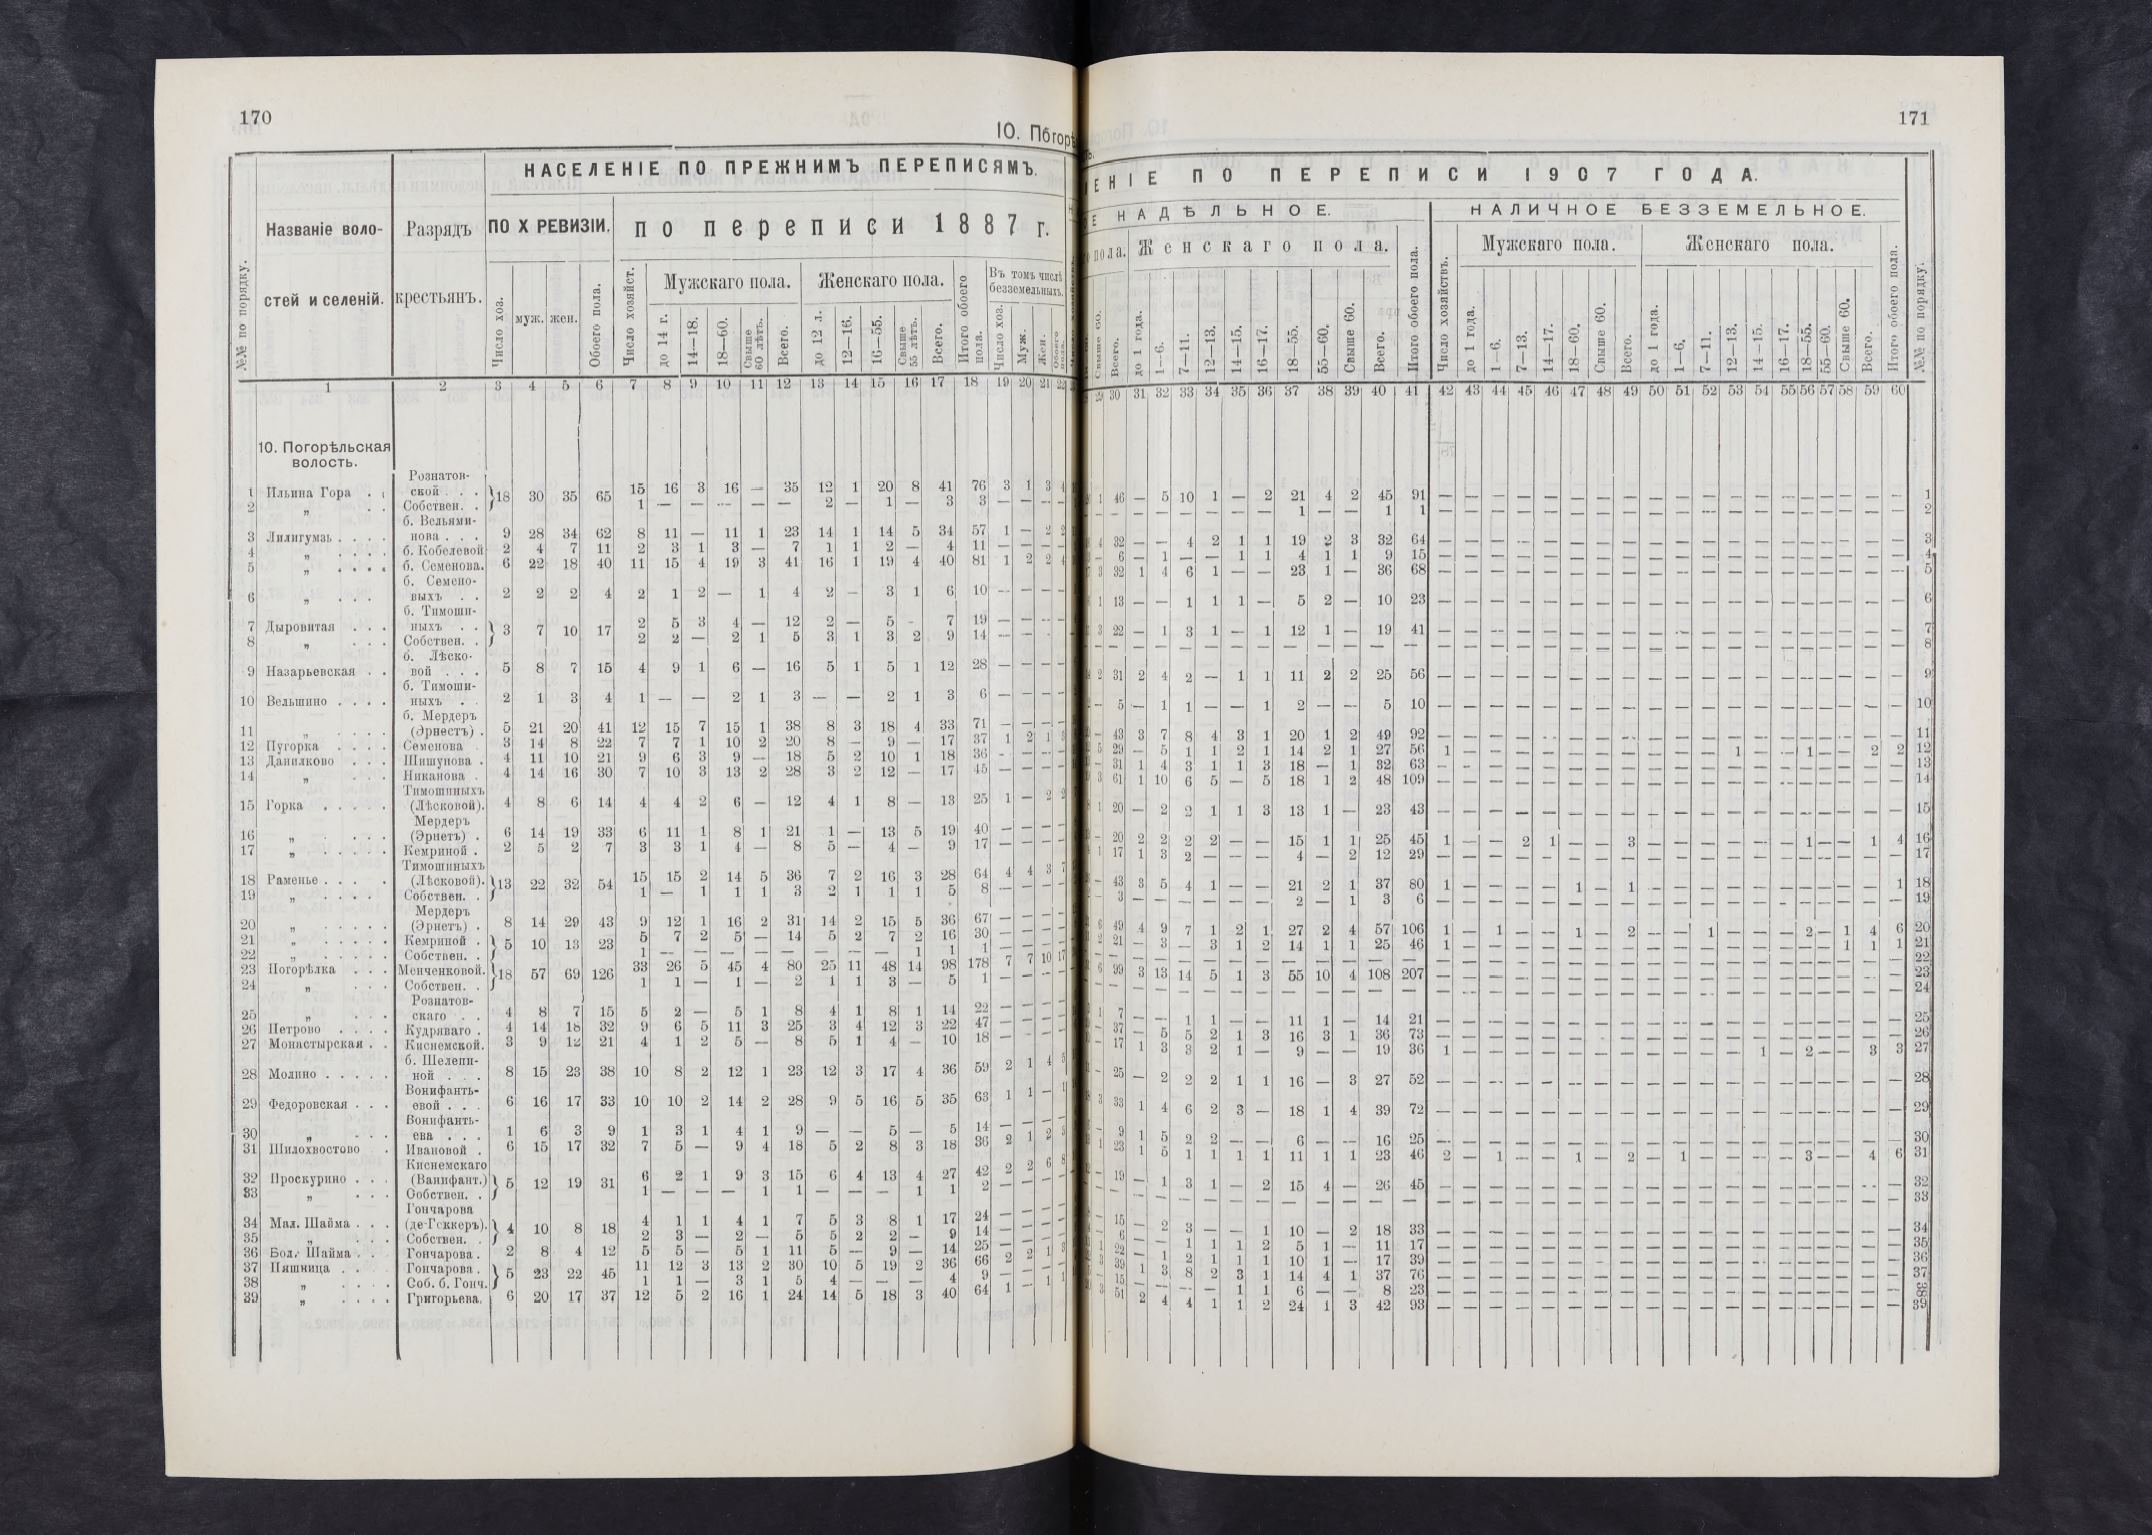 170
10. Погорѣ
НАСЕЛЕНІЕ ПО ПРЕЖНИМЪ ПЕРЕПИСЯМЪ.
№№ по порядку.
Названіе воло-
стей и селеній.
Разрядъ
крестьянъ.
ПО X РЕВИЗІИ.
по переписи 1887 г.
Число хоз.
муж.
жен.
Обоего пола.
Число хозяйст.
Мужскаго пола.
до 14 г.
14—18.
18—60.
Свыше 60 лѣтъ.
Всего.
Женскаго пола.
до 12 л.
12—16.
16—55.
Свыше 55 лѣтъ.
Всего.
Итого обоего пола.
Въ томъ числѣ
безземельныхъ.
Число хоз.
Муж.
Жен.
1 2 3 4 5 6 7 8 9 10 11 12 13 14 15 16 17 18 19 20 21 22
10. Погорѣльская
волость.
Рознатов-
1 Ильина Гора . . ской . . . }18 30 35 65 15 16 3 16 — 35 12 1 20 8 41 76 3 1 3 4
2 „ . . Собствен. . 1 — — — — — 2 — 1 — 3 3 — — —
б. Вельями-
3 Лилигумзь . . . . нова . . . 9 28 34 62 8 11 — 11 1 23 14 1 14 5 34 57 1 — 2 2
4 „ . . . . б. Кобелевой 2 4 7 11 2 3 1 3 — 7 1 1 2 — 4 11 — — —
5 „ . . . . б. Семенова. 6 22 18 40 11 15 4 19 3 41 16 1 19 4 40 81 1 2 2 4
б. Семено-
6 „ . . . выхъ . . 2 2 2 4 2 1 2 — 1 4 2 — 3 1 6 10 — — —
б. Тимоши-
7 Дыровитая . . . ныхъ . . } 3 7 10 17 2 5 3 4 — 12 2 — 5 - 7 19 — — —
8 „ . . . Собствен. . 2 2 — 2 1 5 3 1 3 2 9 14 — — —
б. Лѣско-
9 Назарьевская . . вой . . . 5 8 7 15 4 9 1 6 — 16 5 1 5 1 12 28 — — —
б. Тимоши-
10 Вельшино . . . . ныхъ . . 2 1 3 4 1 — — 2 1 3 — — 2 1 3 6 — — —
б. Мердеръ
11 „ . . . . (Эрнестъ) . 5 21 20 41 12 15 7 15 1 38 8 3 18 4 33 71 — — —
12 Пугорка . . . . Семенова . 3 14 8 22 7 7 1 10 2 20 8 — 9 — 17 37 1 2 1 3
13 Данилково . . . Шишунова . 4 11 10 21 9 6 3 9 — 18 5 2 10 1 18 36 — — —
14 „ . . . Никанова . 4 14 16 30 7 10 3 13 2 28 3 2 12 — 17 45 — — —
Тимошиныхъ
15 Горка . . . . . (Лѣсковой). 4 8 6 14 4 4 2 6 — 12 4 1 8 — 13 25 1 — 2 2
Мердеръ
16 „ . . . . (Эрнетъ) . 6 14 19 33 6 11 1 8 1 21 1 — 13 5 19 40 — — —
17 „ . . . . . Кемриной . 2 5 2 7 3 3 1 4 — 8 5 — 4 — 9 17 — — —
Тимошиныхъ
18 Раменье . . . . (Лѣсковой). }13 22 32 54 15 15 2 14 5 36 7 2 16 3 28 64 4 4 3 7
19 „ . . . . Собствен. . 1 — 1 1 1 3 2 1 1 1 5 8 — — —
Мердеръ
20 „ . . . . . (Эрнетъ) . 8 14 29 43 9 12 1 16 2 31 14 2 15 5 36 67 — — —
21 „ . . . . . Кемриной . } 5 10 13 23 5 7 2 5 — 14 5 2 7 2 16 30 — — —
22 „ . . . . . Собствен. . 1 — — — — — — — — 1 1 1 — — —
23 Погорѣлка . . . Менченковой. }18 57 69 126 33 26 5 45 4 80 25 11 48 14 98 178 7 7 10 17
24 „ . . . Собствен. . 1 1 — 1 — 2 1 1 3 — 5 1 — — —
Рознатов-
25 „ . . . скаго . . 4 8 7 15 5 2 — 5 1 8 4 1 8 1 14 22 — — —
26 Петрово . . . . Кудряваго . 4 14 18 32 9 6 5 11 3 25 3 4 12 3 22 47 — — —
27 Монастырская . . Киснемской. 3 9 12 21 4 1 2 5 — 8 5 1 4 — 10 18 — — —
б. Шелепи-
28 Молино . . . . . ной . . . 8 15 23 38 10 8 2 12 1 23 12 3 17 4 36 59 2 1 4 5
Вонифанть-
29 Федоровская . . . евой . . . 6 16 17 33 10 10 2 14 2 28 9 5 16 5 35 63 1 1 — 1
Вонифанть-
30 „ . . . ева . . . 1 6 3 9 1 3 1 4 1 9 — — 5 — 5 14 — — —
31 Шилохвостово . Ивановой . 6 15 17 32 7 5 — 9 4 18 5 2 8 3 18 36 2 1 2 3
Киснемскаго
32 Проскурино . . . (Ванифант.) } 5 12 19 31 6 2 1 9 3 15 6 4 13 4 27 42 2 2 6 8
33 „ . . . Собствен. . 1 — — — 1 1 — — — 1 1 2 — — —
Гончарова
34 Мал. Шайма . . . (де-Геккеръ). } 4 10 8 18 4 1 1 4 1 7 5 3 8 1 17 24 — — —
35 „ . . . Собствен. . 2 3 — 2 — 5 5 2 2 — 9 14 — — —
36 Бол. Шайма . . Гончарова . 2 8 4 12 5 5 — 5 1 11 5 — 9 — 14 25 — — —
37 Пяшница . . Гончарова . } 5 23 22 45 11 12 3 13 2 30 10 5 19 2 36 66 2 2 1 3
38 „ . . . . Соб. б. Гонч. 1 1 — 3 1 5 4 — — — 4 9 — — —
39 „ . . . . Григорьева. 6 20 17 37 12 5 2 16 1 24 14 5 18 3 40 64 1 — 1 1
171
ЕНІЕ ПО ПЕРЕПИСИ 1907 ГОДА.
Е НАДѢЛЬНОЕ.
НАЛИЧНОЕ БЕЗЗЕМЕЛЬНОЕ.
пола.
Женскаго пола.
Мужскаго пола.
Женскаго пола.
Свыше 60.
Всего.
до 1 года.
1—6.
7—11.
12—13.
14—15.
16—17.
18—55.
55—60.
Свыше 60.
Всего.
Итого обоего пола.
Число хозяйствъ.
до 1 года.
1—6.
7—13.
14—17.
18—60.
Свыше 60.
Всего.
до 1 года.
1—6.
7—11.
12—13.
14—15.
16—17.
18—55.
55—60.
Свыше 60.
Всего.
Итого обоего пола.
№№ по порядку.
29 30 31 32 33 34 35 36 37 38 39 40 41 42 43 44 45 46 47 48 49 50 51 52 53 54 55 56 57 58 59 60
1 46 — 5 10 1 — 2 21 4 2 45 91 — — — — — — — — — — — — — — — — — — — 1
— — — — — — — — 1 — — 1 1 — — — — — — — — — — — — — — — — — — — 2
4 32 — — 4 2 1 1 19 2 3 32 64 — — — — — — — — — — — — — — — — — — — 3
— 6 — 1 — — 1 1 4 1 1 9 15 — — — — — — — — — — — — — — — — — — — 4
3 32 1 4 6 1 — — 23 1 — 36 68 — — — — — — — — — — — — — — — — — — — 5
1 13 — — 1 1 1 — 5 2 — 10 23 — — — — — — — — — — — — — — — — — — — 6
3 22 — 1 3 1 — 1 12 1 — 19 41 — — — — — — — — — — — — — — — — — — — 7
— — — — — — — — — — — — — — — — — — — — — — — — — — — — — — — — 8
2 31 2 4 2 — 1 1 11 2 2 25 56 — — — — — — — — — — — — — — — — — — — 9
— 5 — 1 1 — — 1 2 — — 5 10 — — — — — — — — — — — — — — — — — — — 10
— 43 3 7 8 4 3 1 20 1 2 49 92 — — — — — — — — — — — — — — — — — — — 11
5 29 — 5 1 1 2 1 14 2 1 27 56 1 — — — — — — — — — — 1 — — 1 — — 2 2 12
— 31 1 4 3 1 1 3 18 — 1 32 63 — — — — — — — — — — — — — — — — — — — 13
3 61 1 10 6 5 — 5 18 1 2 48 109 — — — — — — — — — — — — — — — — — — — 14
1 20 — 2 2 1 1 3 13 1 — 23 43 — — — — — — — — — — — — — — — — — — — 15
— 20 2 2 2 2 — — 15 1 1 25 45 1 — — 2 1 — — 3 — — — — — — 1 — — 1 4 16
1 17 1 3 2 — — — 4 — 2 12 29 — — — — — — — — — — — — — — — — — — — 17
— 43 3 5 4 1 — — 21 2 1 37 80 1 — — — — 1 — 1 — — — — — — — — — — 1 18
— 3 — — — — — — 2 — 1 3 6 — — — — — — — — — — — — — — — — — — — 19
6 49 4 9 7 1 2 1 27 2 4 57 106 1 — 1 — — 1 — 2 — — 1 — — — 2 — 1 4 6 20
2 21 — 3 — 3 1 2 14 1 1 25 46 1 — — — — — — — — — — — — — — — 1 1 1 21
— — — — — — — — — — — — — — — — — — — — — — — — — — — — — — — — 22
6 99 3 13 14 5 1 3 55 10 4 108 207 — — — — — — — — — — — — — — — — — — — 23
— — — — — — — — — — — — — — — — — — — — — — — — — — — — — — — — 24
1 7 — — 1 1 — — 11 1 — 14 21 — — — — — — — — — — — — — — — — — — — 25
— 37 — 5 5 2 1 3 16 3 1 36 73 — — — — — — — — — — — — — — — — — — — 26
— 17 1 3 3 2 1 — 9 — — 19 36 1 — — — — — — — — — — — 1 — 2 — — 3 3 27
— 25 — 2 2 2 1 1 16 — 3 27 52 — — — — — — — — — — — — — — — — — — — 28
3 33 1 4 6 2 3 — 18 1 4 39 72 — — — — — — — — — — — — — — — — — — — 29
— 9 1 5 2 2 — — 6 — — 16 25 — — — — — — — — — — — — — — — — — — — 30
1 23 1 5 1 1 1 1 11 1 1 23 46 2 — 1 — — 1 — 2 — 1 — — — — 3 — — 4 6 31
— 19 — 1 3 1 — 2 15 4 — 26 45 — — — — — — — — — — — — — — — — — — — 32
— — — — — — — — — — — — — — — — — — — — — — — — — — — — — — — — 33
— 15 — 2 3 — — 1 10 — 2 18 33 — — — — — — — — — — — — — — — — — — — 34
— 6 — 1 1 1 2 5 1 — 11 17 — — — — — — — — — — — — — — — — — — — 35
1 22 — 1 2 1 1 1 10 1 — 17 39 — — — — — — — — — — — — — — — — — — — 36
3 39 1 3 8 2 3 1 14 4 1 37 76 — — — — — — — — — — — — — — — — — — — 37
— 15 — — — — 1 1 6 — — 8 23 — — — — — — — — — — — — — — — — — — — 38
3 51 2 4 4 1 1 2 24 1 3 42 93 — — — — — — — — — — — — — — — — — — — 39